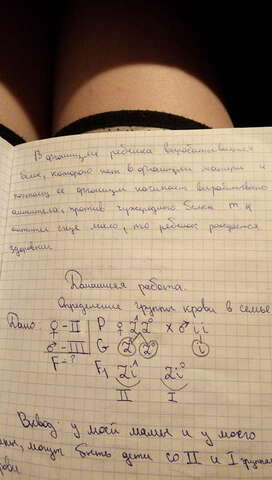 В организме ребёнка вырабатывается
белок, которого нет в организме матери и
поэтому её организм начинает вырабатывать
антитела, против чужеродного белка т.к
антител еще мало, то ребёнок рождается
здоровым.
Домашняя работа.
Определение группы крови в семье
Дано: ♀-II P ♀ x ♂ ii
♂-III G i
F-? F₁
II I
Вывод: у моей мамы и у моего
могут быть дети со II и I группами
крови